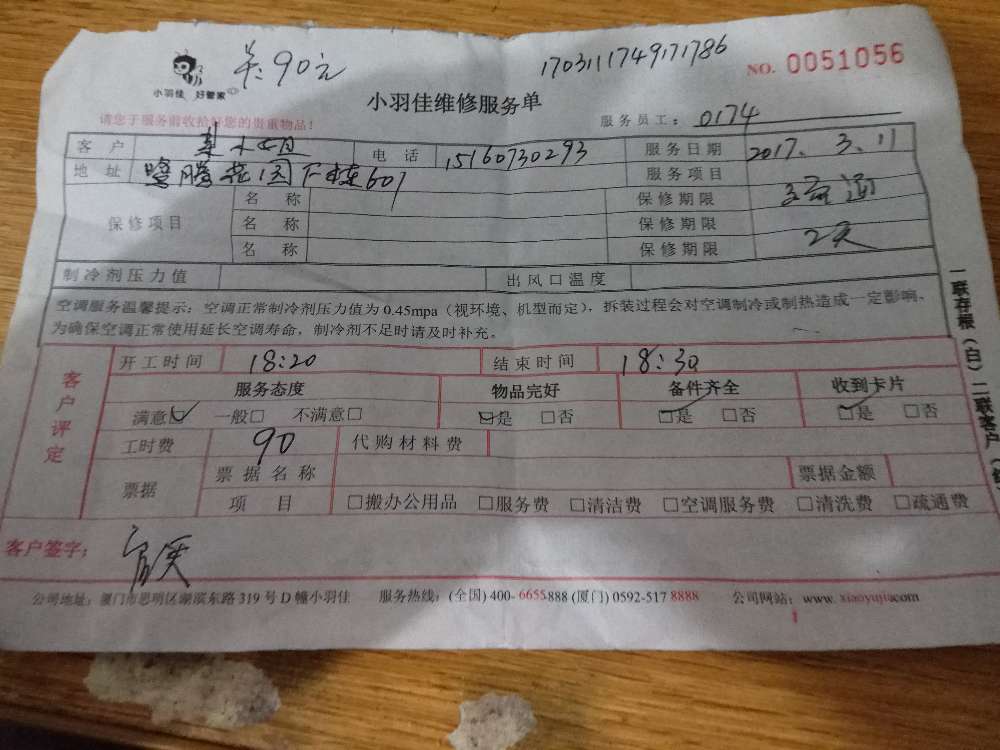 共:90元
1703111749171786
NO. 0051056
小羽佳 好管家
小羽佳维修服务单
请您于服务前收拾好您的贵重物品!
服务员工: 0174
客户 小姐 电话 15160730293 服务日期 2017. 3. 11
地址 腾花园 栋607 服务项目
保修项目
名称 保修期限
名称 保修期限 2天
名称 保修期限
制冷剂压力值 出风口温度
空调服务温馨提示:空调正常制冷剂压力值为 0.45mpa(视环境、机型而定),拆装过程会对空调制冷或制热造成一定影响。
为确保空调正常使用延长空调寿命,制冷剂不足时请及时补充。
客户评定
开工时间 18:20 结束时间 18:30
服务态度 物品完好 备件齐全 收到卡片
满意☑ 一般□ 不满意□ ☑是 □否 ☑是 □否 ☑是 □否
工时费 90 代购材料费
票据 票据名称 票据金额
项目 □搬办公用品 □服务费 □清洁费 □空调服务费 □清洗费 □疏通费
客户签字:
公司地址:厦门市思明区湖滨东路 319 号 D 幢小羽佳 服务热线:(全国) 400- 6655-888 (厦门) 0592-517 8888 公司网站:www. xiaoyujia.com
一联存根(白)二联客户(